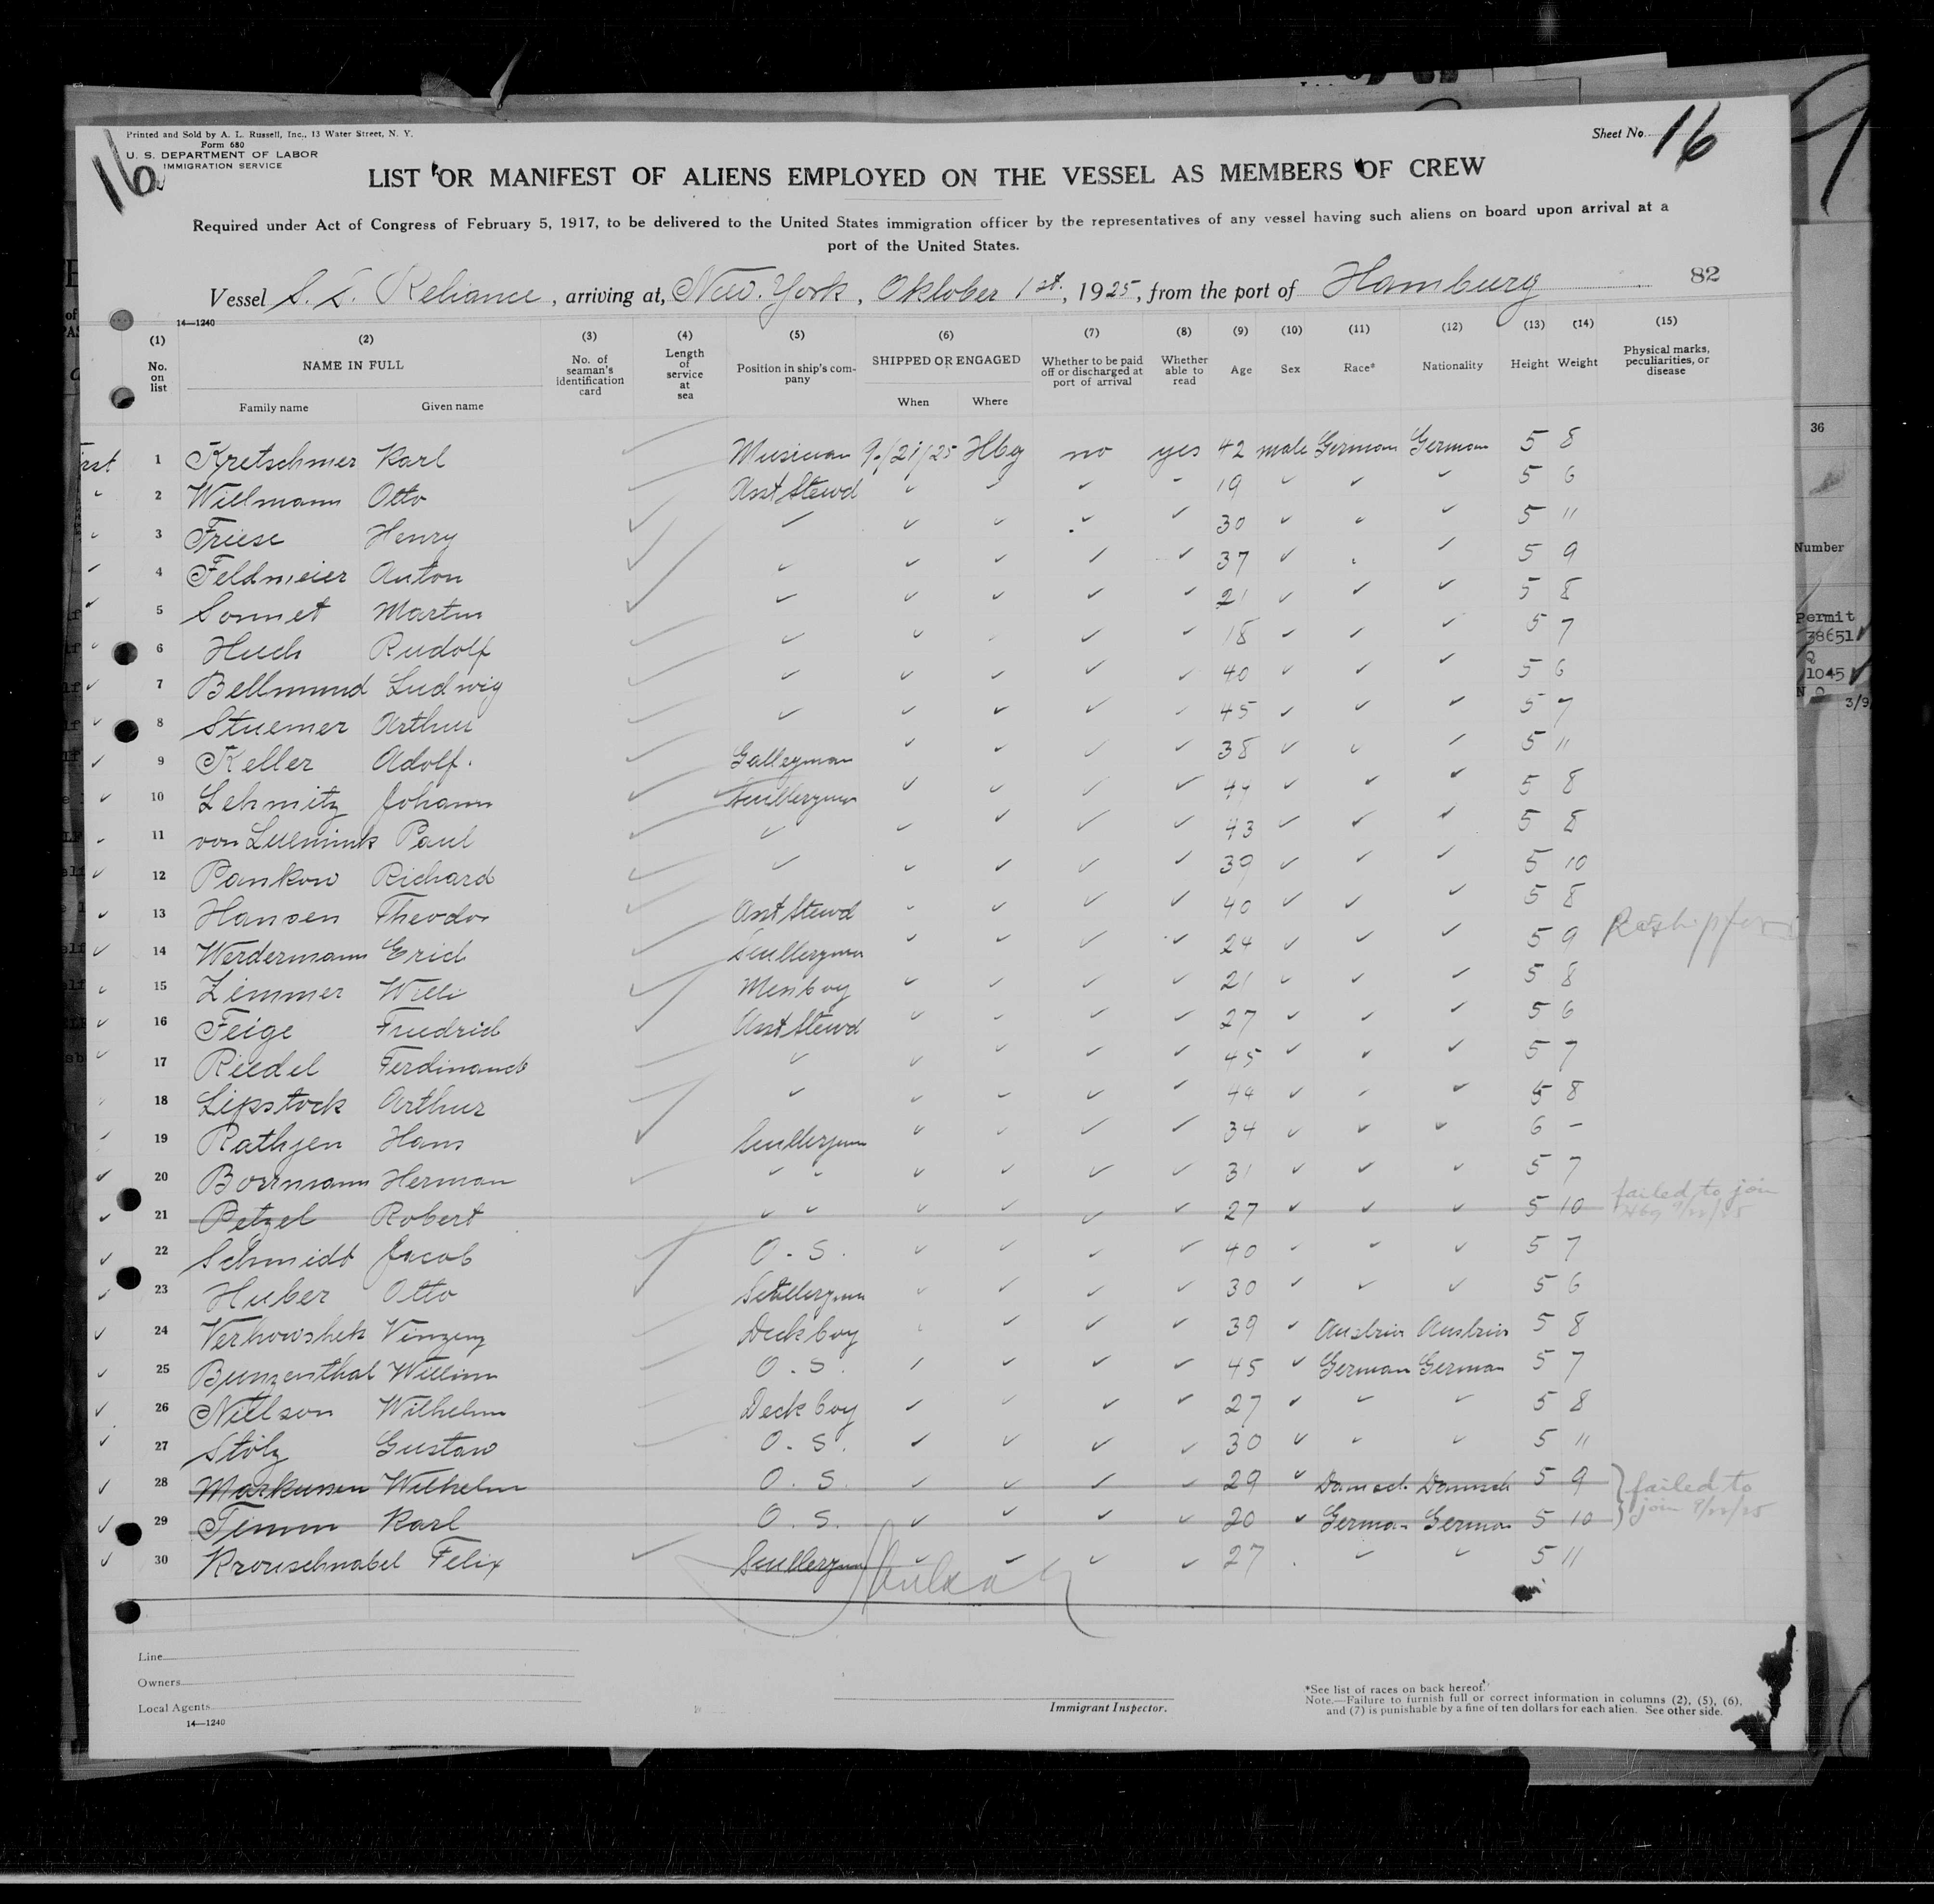 Printed and Sold by A. L. Russell, Inc., 13 Water Street, N. Y.
Form 680
U. S. DEPARTMENT OF LABOR
IMMIGRATION SERVICE
16
Sheet No. 16
LIST OR MANIFEST OF ALIENS EMPLOYED ON THE VESSEL AS MEMBERS OF CREW
Required under Act of Congress of February 5, 1917, to be delivered to the United States immigration officer by the representatives of any vessel having such aliens on board upon arrival at a
port of the United States.
Vessel S. S. Reliance, arriving at, New. York, Oktober 1st, 1925, from the port of Hamburg
82
14—1240
(1) No. on list
(2) NAME IN FULL Family name Given name
(3) No. of seaman's identification card
(4) Length of service at sea
(5) Position in ship's company
(6) SHIPPED OR ENGAGED When Where
(7) Whether to be paid off or discharged at port of arrival
(8) Whether able to read
(9) Age
(10) Sex
(11) Race*
(12) Nationality
(13) Height
(14) Weight
(15) Physical marks, peculiarities, or disease
1 Kretschmer Karl Musician 9/21/25 Hbg no yes 42 male German German 5 8
2 Willmann Otto Asst Stewd 19 5 6
3 Friese Henry 30 5 11
4 Feldmeier Anton 37 5 9
5 Sonnet Martin 21 5 8
6 Huch Rudolf 18 5 7
7 Bellmund Ludwig 40 5 6
8 Stuemer Arthur 45 5 7
9 Keller Adolf. Galleyman 38 5 11
10 Lehmitz Johann Scullerymn 44 5 8
11 von Luemink Paul 43 5 8
12 Pankow Richard 39 5 10
13 Hansen Theodor Asst Stewd 40 5 8
14 Werdermann Erich Scullerymn 24 5 9
15 Zimmer Willi Messboy 21 5 8
16 Feige Friedrich Asst Stewd 27 5 6
17 Riedel Ferdinand 45 5 7
18 Lipstock Arthur 44 5 8
19 Rathjen Hans Scullerymn 34 6 -
20 Borrmann Herman 31 5 7
21 Petzel Robert 27 5 10 failed to join
Hbg 9/22/25
22 Schmidt Jacob O. S. 40 5 7
23 Huber Otto Scullerymn 30 5 6
24 Verhowshek Vinzenz Deckboy 39 Austrian Austrian 5 8
25 Bunzenthal William O. S. 45 German German 5 7
26 Nillson Wilhelm Deckboy 27 5 8
27 Stölz Gustav O. S. 30 5 11
28 Markussen Wilhelm O. S. 29 Danisch Danisch 5 9 failed to
29 Timm Karl O. S. 20 German German 5 10 join 9/22/25
30 Kronschnabel Felix Scullerymn 27 5 11
Line
Owners
Local Agents
14—1240
Immigrant Inspector.
*See list of races on back hereof.
Note.—Failure to furnish full or correct information in columns (2), (5), (6),
and (7) is punishable by a fine of ten dollars for each alien. See other side.
36
Number
Permit
38651
1045
3/9